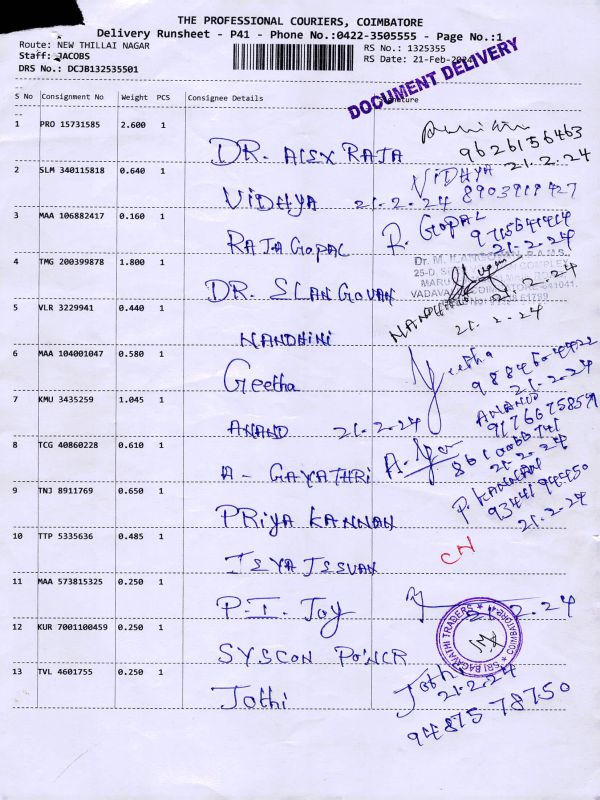 THE PROFESSIONAL COURIERS, COIMBATORE
Delivery Runsheet - P41 - Phone No.:0422-3505555 - Page No.:1
Route: NEW THILLAI NAGAR
RS No.: 1325355
Staff: JACOBS
RS Date: 21-Feb-2024
DRS No.: DCJB132535501
DOCUMENT DELIVERY
S No Consignment No Weight PCS Consignee Details Signature
1 PRO 15731585 2.600 1
DR. ALSX RAJA
9626156463
21.2.24
2 SLM 340115818 0.640 1
VIDHYA 21.2.24
VIDHYA
8903918427
3 MAA 106882417 0.160 1
RAJA GOPAL
R. GOPAL
21.2.24
4 TMG 200399878 1.800 1
DR. SLANGOVAN
21.2.24
5 VLR 3229941 0.440 1
NANDHINI
NANDHINI
21.2.24
6 MAA 104001047 0.580 1
Geetha
Geetha
21.2.24
7 KMU 3435259 1.045 1
ANAND 21.2.24
ANAND
8 TCG 40860228 0.610 1
A- GAYATHRI
21.2.24
9 TNJ 8911769 0.650 1
PRIYA KANNAN
P. KANNAN
9344194450
21.2.24
10 TTP 5335636 0.485 1
ISYA ISSUAN
CN
11 MAA 573815325 0.250 1
P.I. JOY
21.2.24
12 KUR 7001100459 0.250 1
SYSCON POWCR
SRI BAGAVATHI TRADERS
COIMBATORE
13 TVL 4601755 0.250 1
Jothi
Jothi
21.2.24
94875 78750